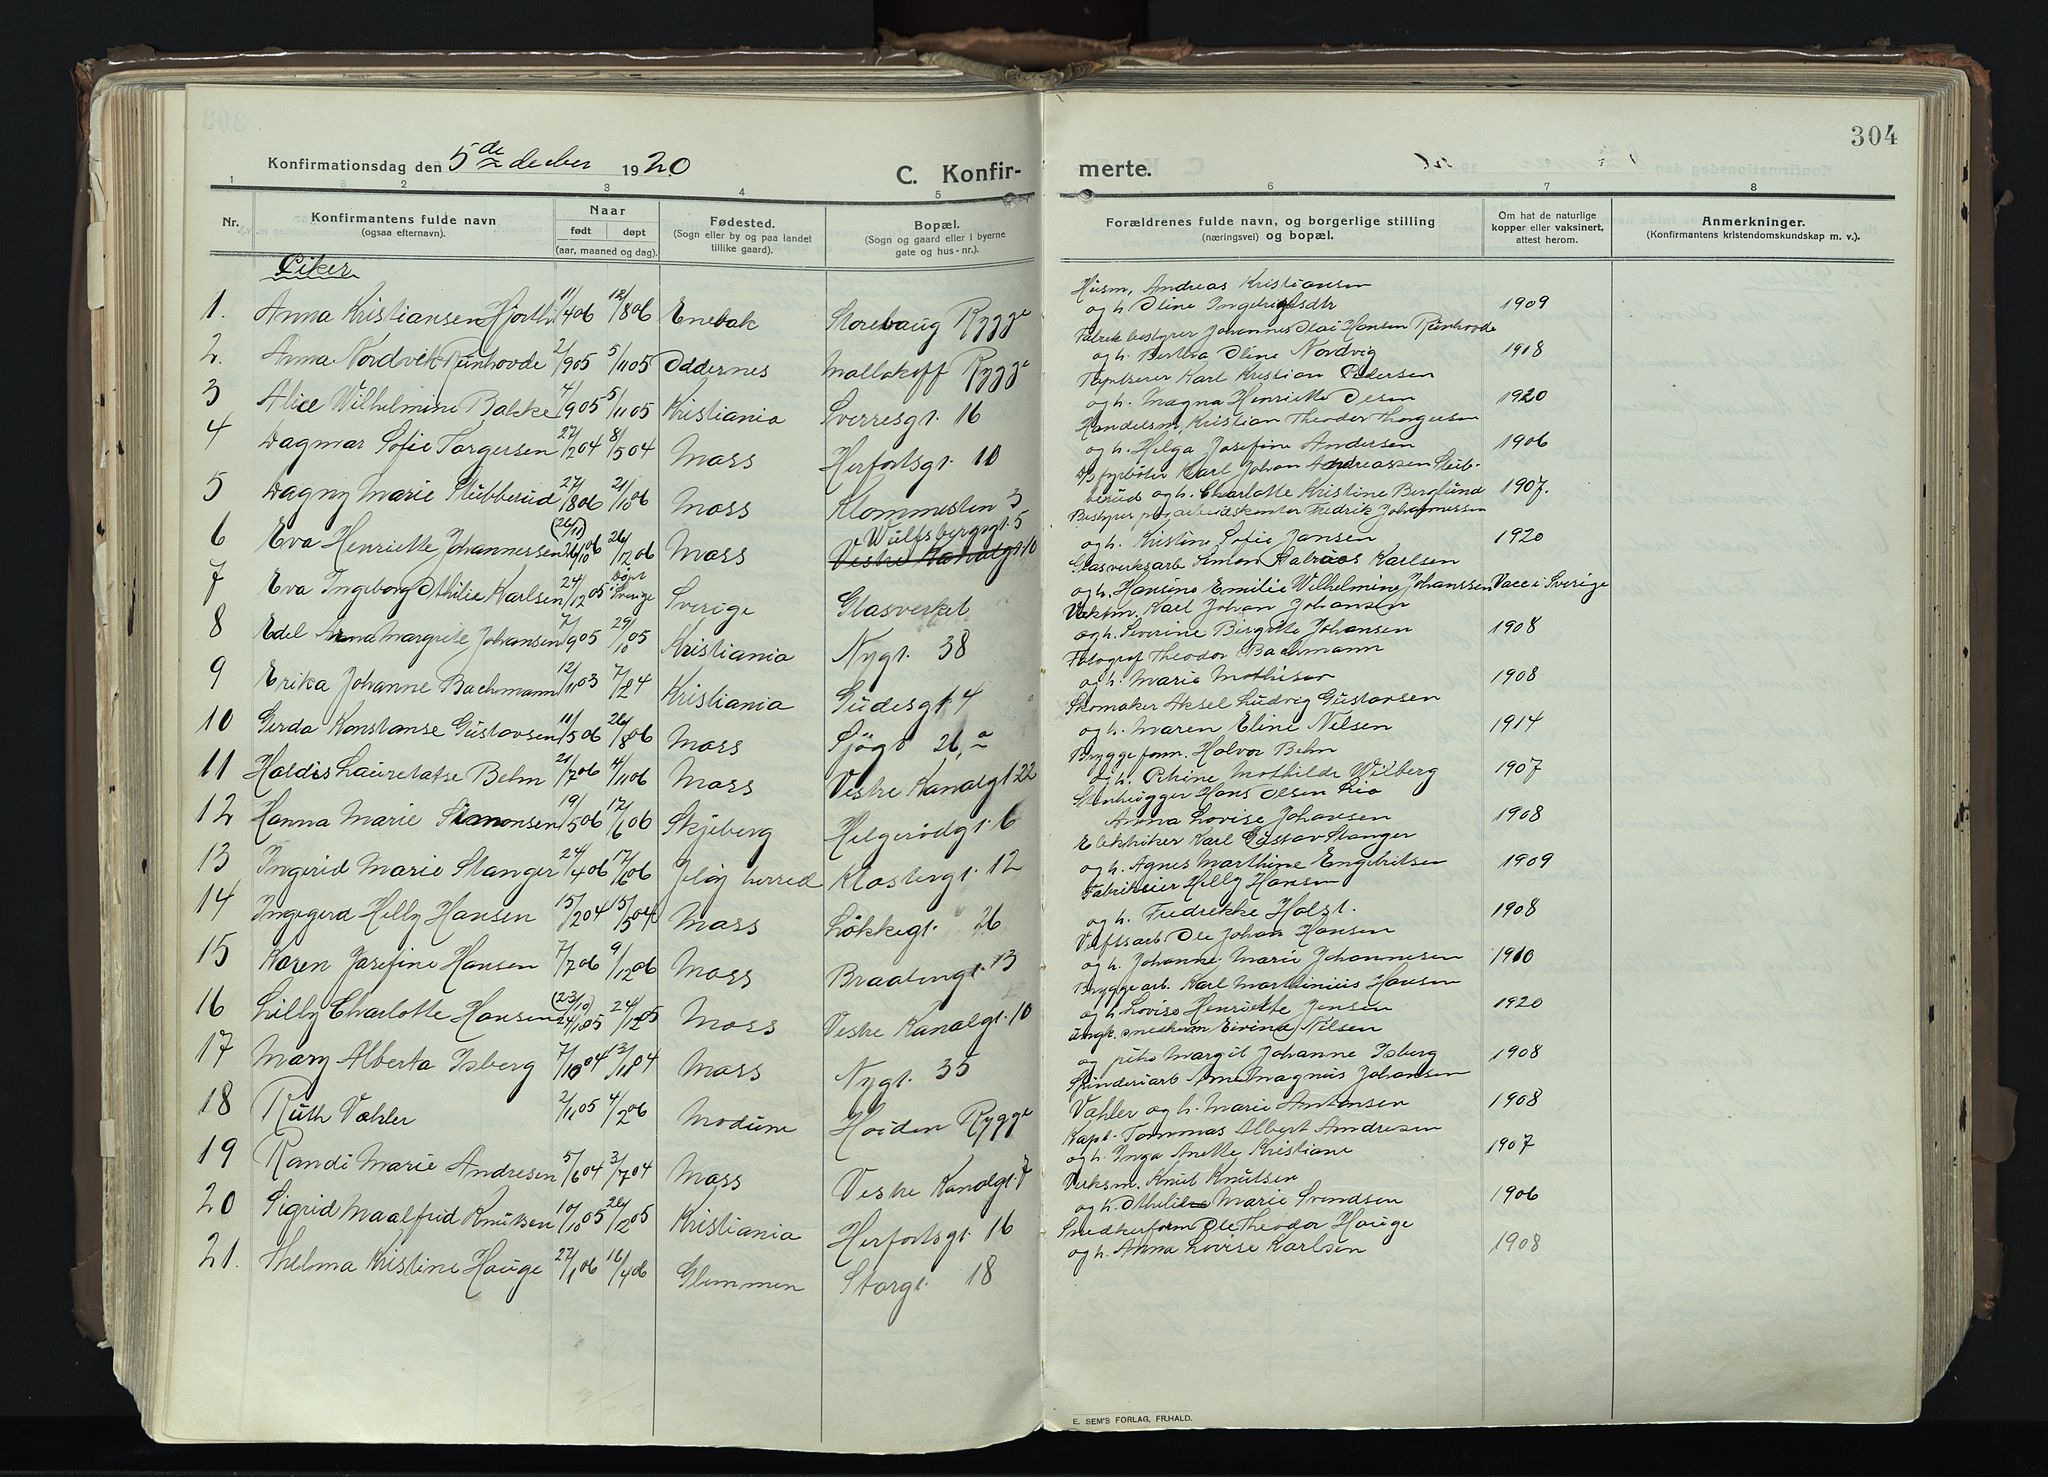 304
Konfirmationsdag den 5de december 1920
C. Konfirmerte.
1 2 3 4 5 6 7 8
Nr. Konfirmantens fulde navn (ogsaa efternavn). Naar født døpt (aar, maaned og dag). Fødested. (Sogn eller by og paa landet tillike gaard). Bopæl. (Sogn og gaard eller i byerne gate og hus-nr.). Forældrenes fulde navn, og borgerlige stilling (næringsvei) og bopæl. Om hat de naturlige kopper eller vaksinert, attest herom. Anmerkninger. (Konfirmantens kristendomskundskap m. v.).
Piker
1. Anna Kristiansen Hjorth 11/4 06 12/8 06 Enebak Storebaug Rygge Husm. Andreas Kristiansen
og h. Oline 1909
2. Anna Nordvik Runhovde 2/9 05 5/11 05 Oddernes Mallakoff Rygge Fabrikbestyrer Johannes Olai Hansen Runhovde
og h. Bertha Oline Nordvig 1908
3 Alice Wilhelmine Bakke 4/9 05 5/11 05 Kristiania Sverresgt. 16 Karl Kristian Pedersen
og h. Magna Henriette Olsen 1920
4 Dagmar Sofie Torgersen 27/2 04 8/5 04 Moss Herfortsgt. 10 Handelsm. Kristian Theodor Thorgersen
og h. Helga Josefine Andersen 1906
5 Dagny Marie Stubberud 27/8 06 21/10 06 Moss Klommesten 3 D/S fyrbøter Karl Johan Andreassen Stub-
berud og h. Charlotte Kristine Berglund 1907.
6 Eva Henriette Johannessen (26/11) 26/10 06 26/12 06 Moss Wulfsbergsgt. 5 Vestre Kanalgt. 10 Bestyrer paa arbeidskontor Fredrik Johannessen
og h. Kristine Sofie Jansen 1920
7 Eva Ingeborg Othilie Karlsen 24/12 05 Døpt i Sverige Sverige Glasverket Glasverksarb Simon Karlsen
og h. Hansine Emilie Wilhelmine Johanssen Vacc i Sverige
8 Edel Anna Margrete Johansen 7/9 05 29/10 05 Kristiania Nygt. 38 Karl Johan Johansen
og h. Severine Birgitte Johansen 1908
9 Erika Johanne Bachmann 12/11 03 7/2 4 Kristiania Gudesgt. 4 Fotograf Theodor Bachmann
og h. Marie Mathisen 1908
10 Gerda Konstanse Gustavsen 11/5 06 26/8 06 Moss Sjøgt 26 a Skomaker Aksel Ludvig Gustavsen
og h. Maren Eline Nilsen 1914
11 Haldis Lauretatse Behm 21/7 06 4/11 06 Moss Vestre Kanalgt 22 Bryggeform. Halvor Behm
og h. Mathilde Wilberg 1907
12 Hanna Marie Simonsen 19/5 06 17/6 06 Skjeberg Helgerødgt. 6 Stenhugger Hans Olsen Lie
Anna Lovise Johansen 1908
13 Ingerid Marie Stanger 24/4 06 17/6 06 Jeløy herred Klostergt. 12 Elektriker Karl Gustav Stanger
og h. Agnes Marthine Engebritsen 1909
14 Ingegerd Helly Hansen 15/2 04 15/5 04 Moss Løkkegt. 26 Fabrikeier Helly Hansen
og h. Fredrekke Holst. 1908
15 Karen Josefine Hansen 7/7 06 9/12 06 Moss Braatengt. 13 Verftsarb Ole Johan Hansen
og h. Johanne Marie Johannesen 1910
16 Lilly Charlotte Hansen (23/10) 24/10 05 24/12 05 Moss Vestre Kanalgt. 10 Bryggearb. Karl Marthinius Hansen
og h Lovise Henriette Jensen 1920
17 Mary Alberta Isberg 7/10 04 13/11 04 Moss Nygt. 35 Ungk. snedkerm Eivind Nilsen
og pike Margit Johanne Isberg 1908
18 Ruth Væhler 2/11 05 4/2 06 Modum Høiden Rygge Magnus Johansen
Væhler og h. Marie Antonsen 1908
19 Randi Marie Andresen 5/6 04 3/7 04 Moss Vestre Kanalgt. 7 Kapt. Tommas Albert Andresen
og h. Inga Anette Kristiane 1907
20 Sigrid Maalfrid Knutsen 10/10 05 26/12 05 Kristiania Herfortsgt. 16 Verksm. Knut Knutsen
og h. Othilie Marie Svendsen 1906
21. Thelma Kristine Hauge 27/1 06 16/4 06 Glemmen Storgt. 18 Snedkerform Ole Theodor Hauge
og h. Anna Lovise Karlsen 1908
E. SEM'S FORLAG, FR.HALD.